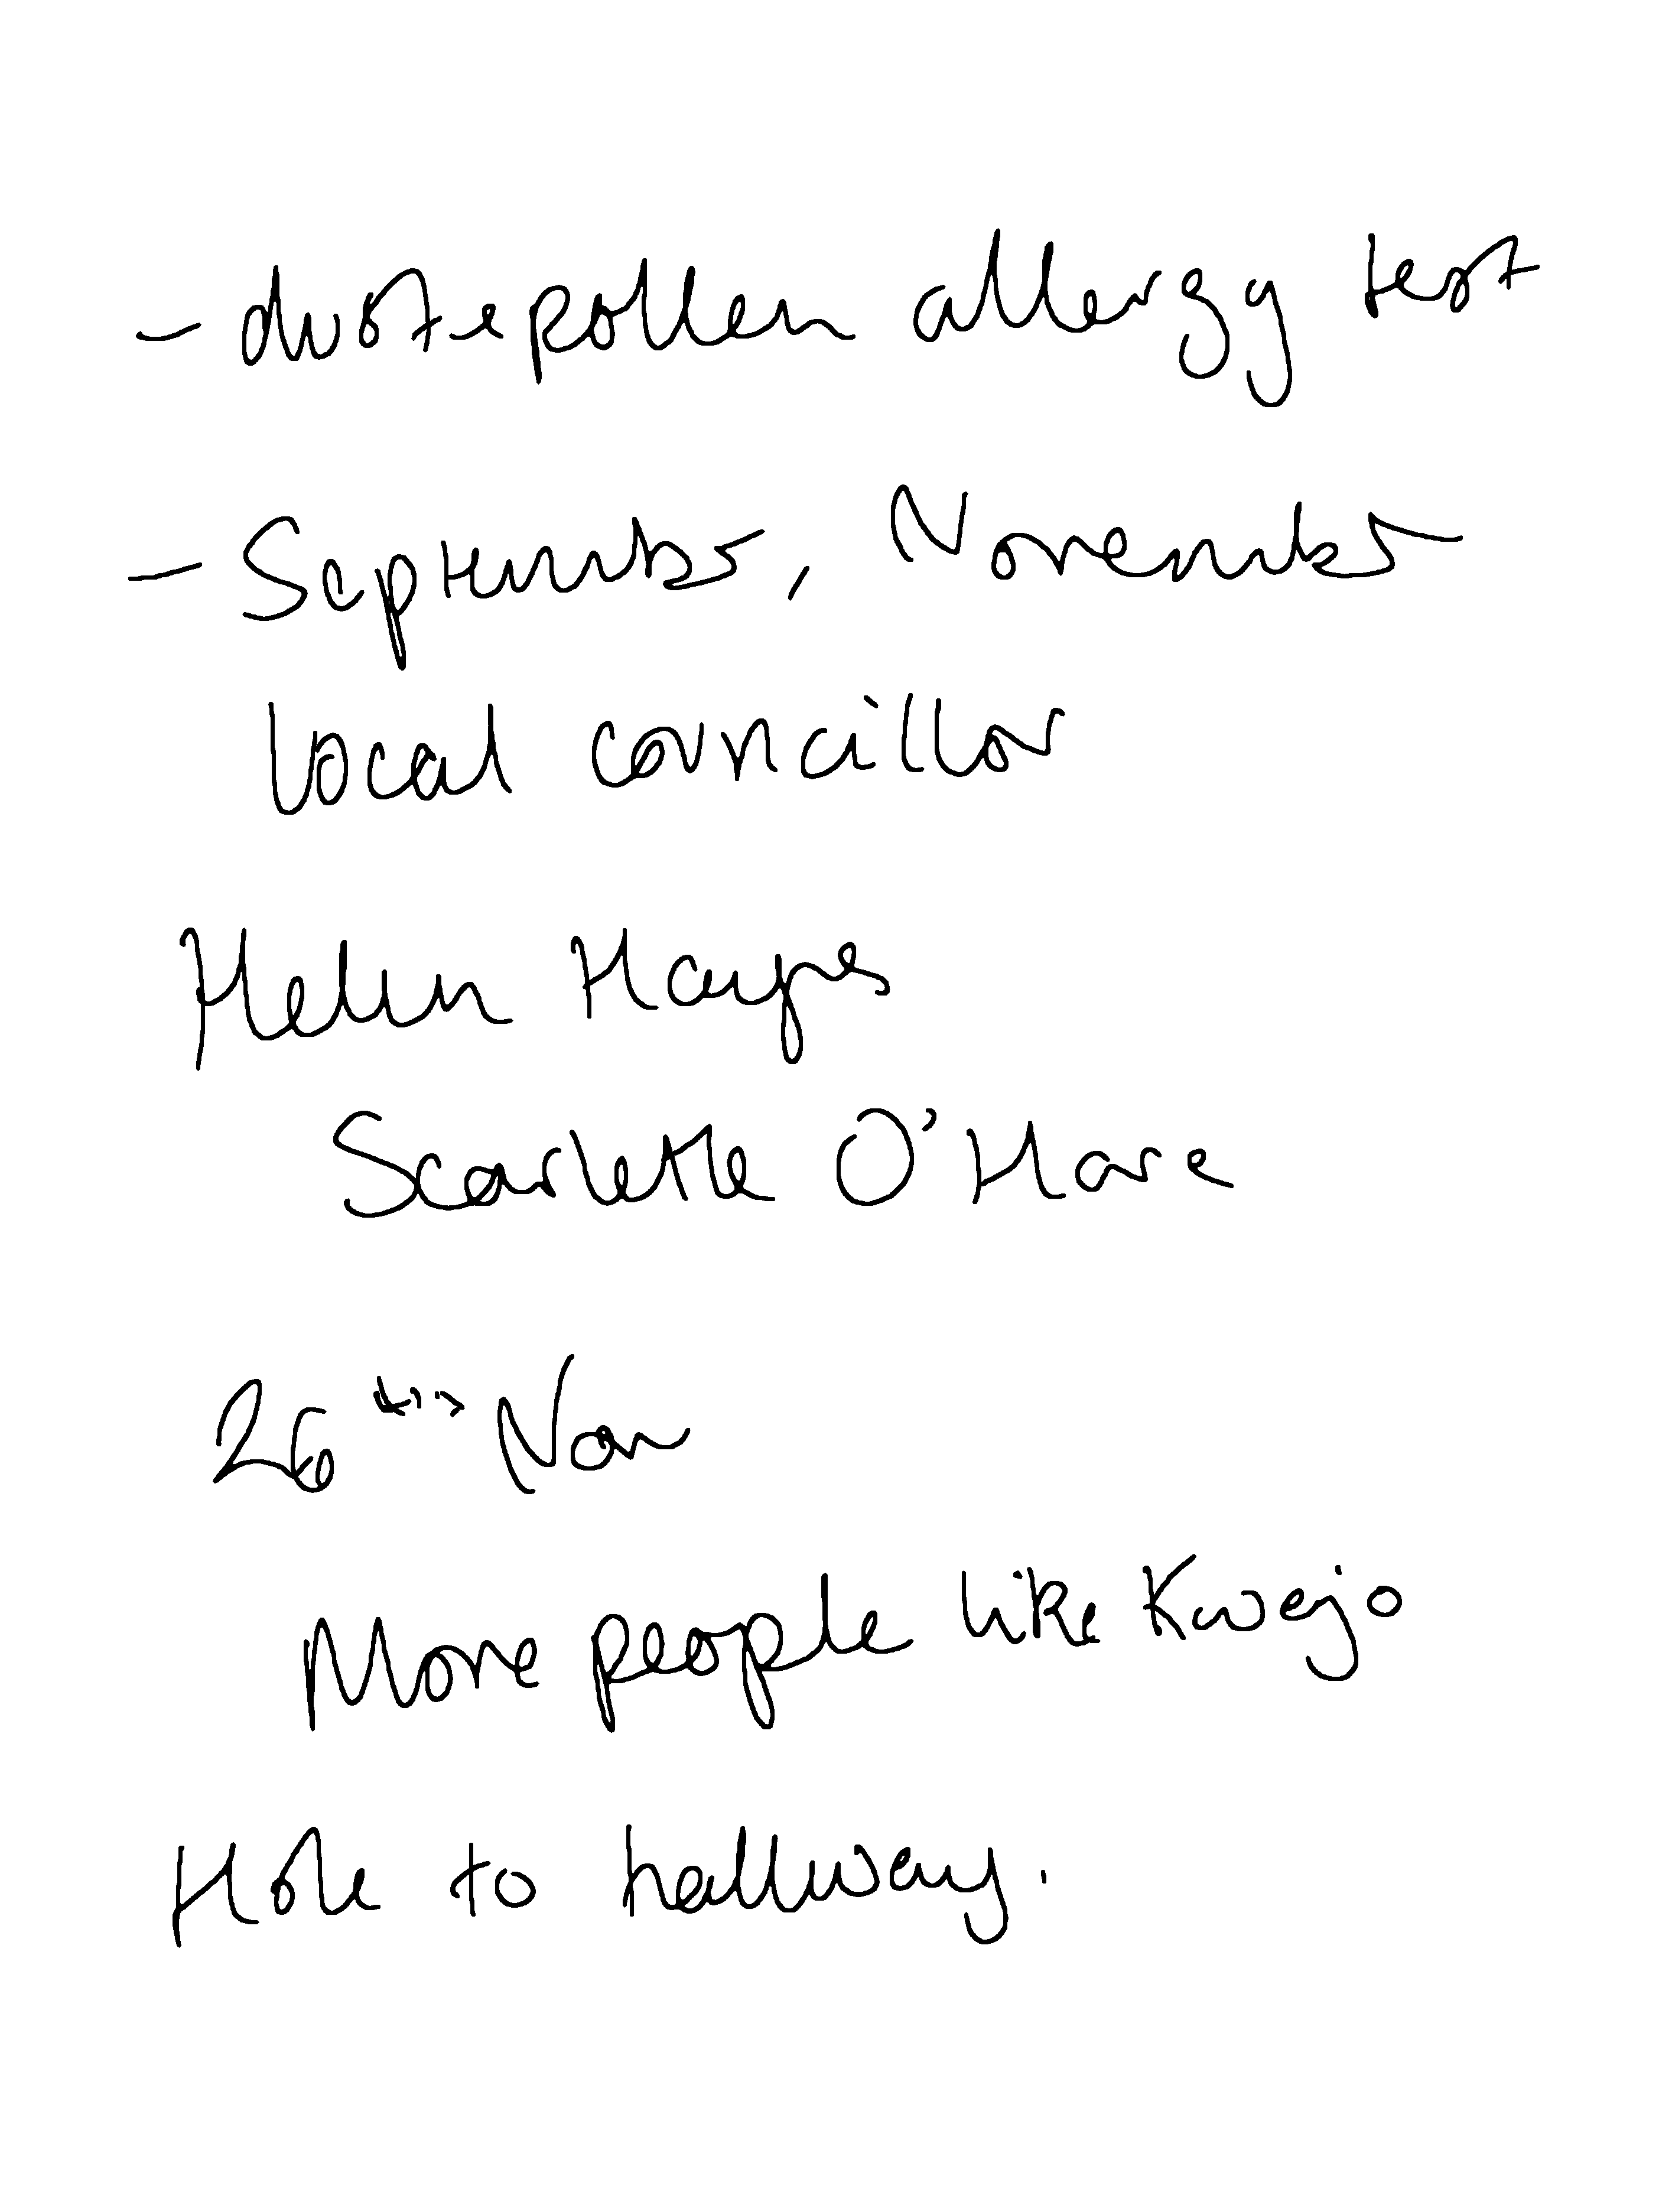 - dust & pollen allergy test
- September, November
local councillor
Helen Hayes
Scarlette O'Hare
26th Nov
More people like Kwejo
Hole to hallway.